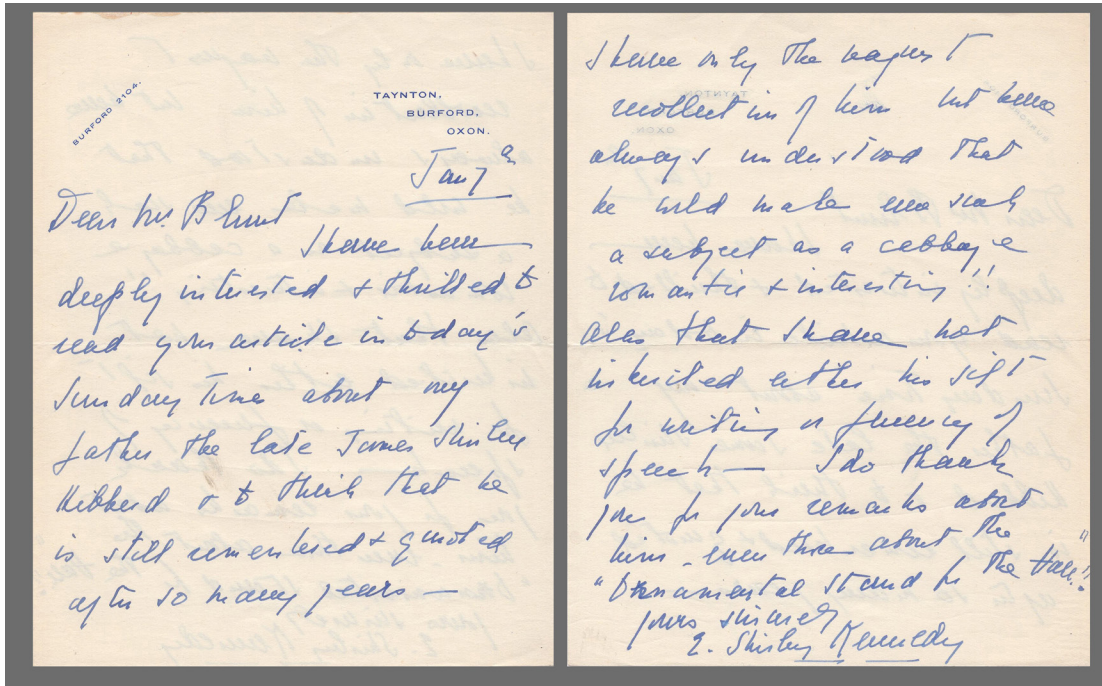 BURFORD 2104.
TAYNTON,
BURFORD,
OXON.
Jan 7th
Dear Mr. Blunt
I have been
deeply interested & thrilled to
read your article in to day's
Sunday Times about my
father the late James Shirley
Hibberd & to think that he
is still remembered & quoted
after so many years —
I have only the vaguest
recollection of him but have
always understood that
he could make even such
a subject as a cabbage
romantic & interesting!!
Alas that I have not
inherited either his gift
for writing or fluency of
speech — I do thank
you for your remarks about
him - even those about the
"Ornamental Stand for the Hall"!!
yours sincerely
E. Shirley Kennedy